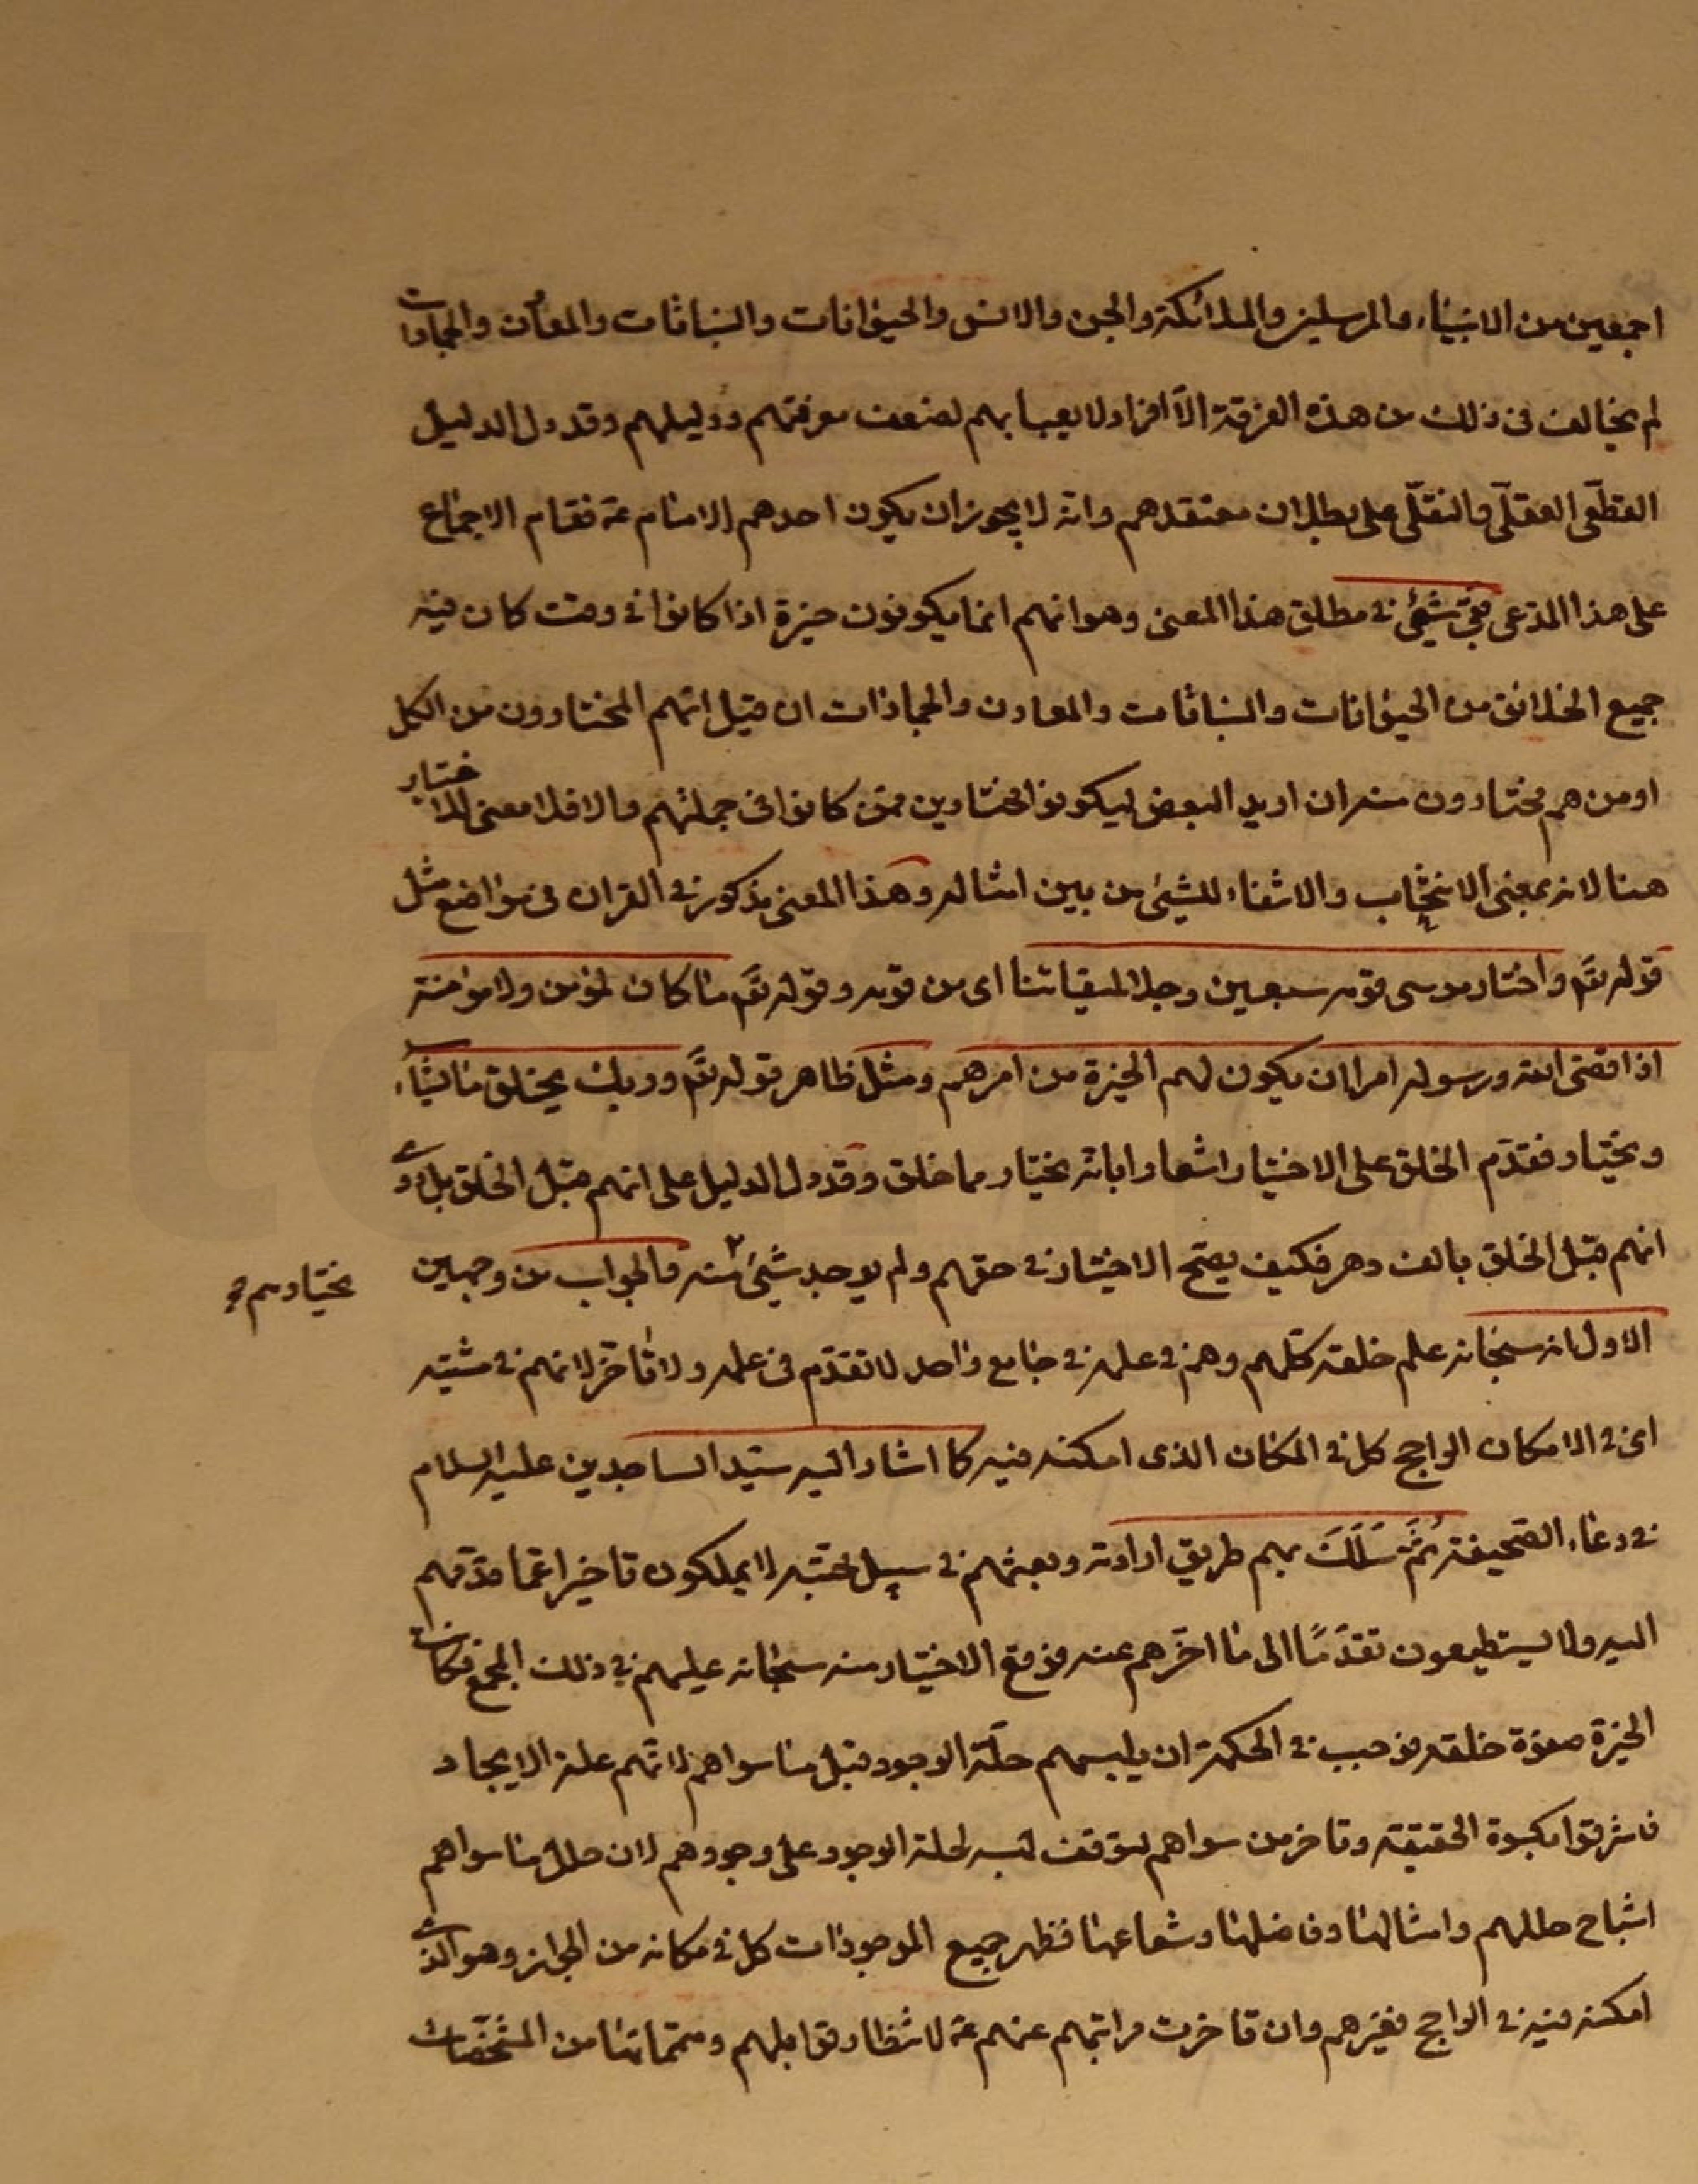 اجمعين من الانبياء والمرسلين والملائكة والجن والانس والحيوانات والنباتات والمعادن والجمادات
لم يخالف فى ذلك من هذه الفرقة الا افراد لا يعبأ بهم لضعف معرفتهم ودليلهم وقد دل الدليل
القطعى العقلى والنقلى على بطلان معتقدهم وانه لا يجوز ان يكون احدهم الامام ع فقام الاجماع
على هذا المدعى بقى شيئ فى مطلق هذا المعنى وهو انهم انما يكونون خيرة اذا كانوا فى وقت كان فيه
جميع الخلائق من الحيوانات والنباتات والمعادن والجمادات ان قيل انهم المختارون من الكل
او من هم مختارون منه ان اريد البعض ليكونوا مختارين ممن كانوا فى جملتهم والا فلا معنى للاختيار
هنا لانه بمعنى الانتخاب والاثفاء للشيئ من بين امثاله وهذا المعنى مذكور فى القران فى مواضع مثل
قوله تع واختار موسى قومه سبعين رجلا لميقاتنا اى من قومه وقوله تع ما كان لمؤمن ولا مؤمنة
اذا قضى الله ورسوله امرا ان يكون لهم الخيرة من امرهم ومثل ظاهر قوله تع وربك يخلق ما يشاء
ويختار فقدم الخلق على الاختيار اشعارا بانه يختار مما خلق وقد دل الدليل على انهم قبل الخلق بل روى
انهم قبل الخلق بالف دهر فكيف يصح الاختيار فى حقهم ولم يوجد شيئ منه فالجواب من وجهين
يختارهم
الاول انه سبحانه علم خلقه كلهم وهم فى علمه فى جامع واحد لا تقدم فى علمه ولا تأخر لانهم فى مشيته
اى فى الامكان الراجح كل فى المكان الذى امكنه فيه كما اشار اليه سيد الساجدين عليه السلام
فى دعاء الصحيفة ثُمَّ سَلَكَ بهم طريق ارادته وبعثهم فى سبيل محبته لا يملكون تاخيرا عما قدمهم
اليه ولا يستطيعون تقدمًا الى ما اخرهم عنه فوقع الاختيار منه سبحانه عليهم فى ذلك المجمع فكانت
الخيرة صفوة خلقه فوجب فى الحكمة ان يلبسهم حلة الوجود قبل ما سواهم لانهم علة الايجاد
فاشرقوا بكسوة الحقيقة وتاخر من سواهم لتوقف لبسه لحلة الوجود على وجودهم لان حلل ما سواهم
اشباح حللهم وامثالها وفاضلها وشعاعها فظهر جميع الموجودات كل فى مكانه من الجائز وهو الذى
امكنه فيه فى الراجح فغيرهم وان تاخرت مراتبهم عنهم ع لانتظار قوابلهم ومتمماتها من المشخصات